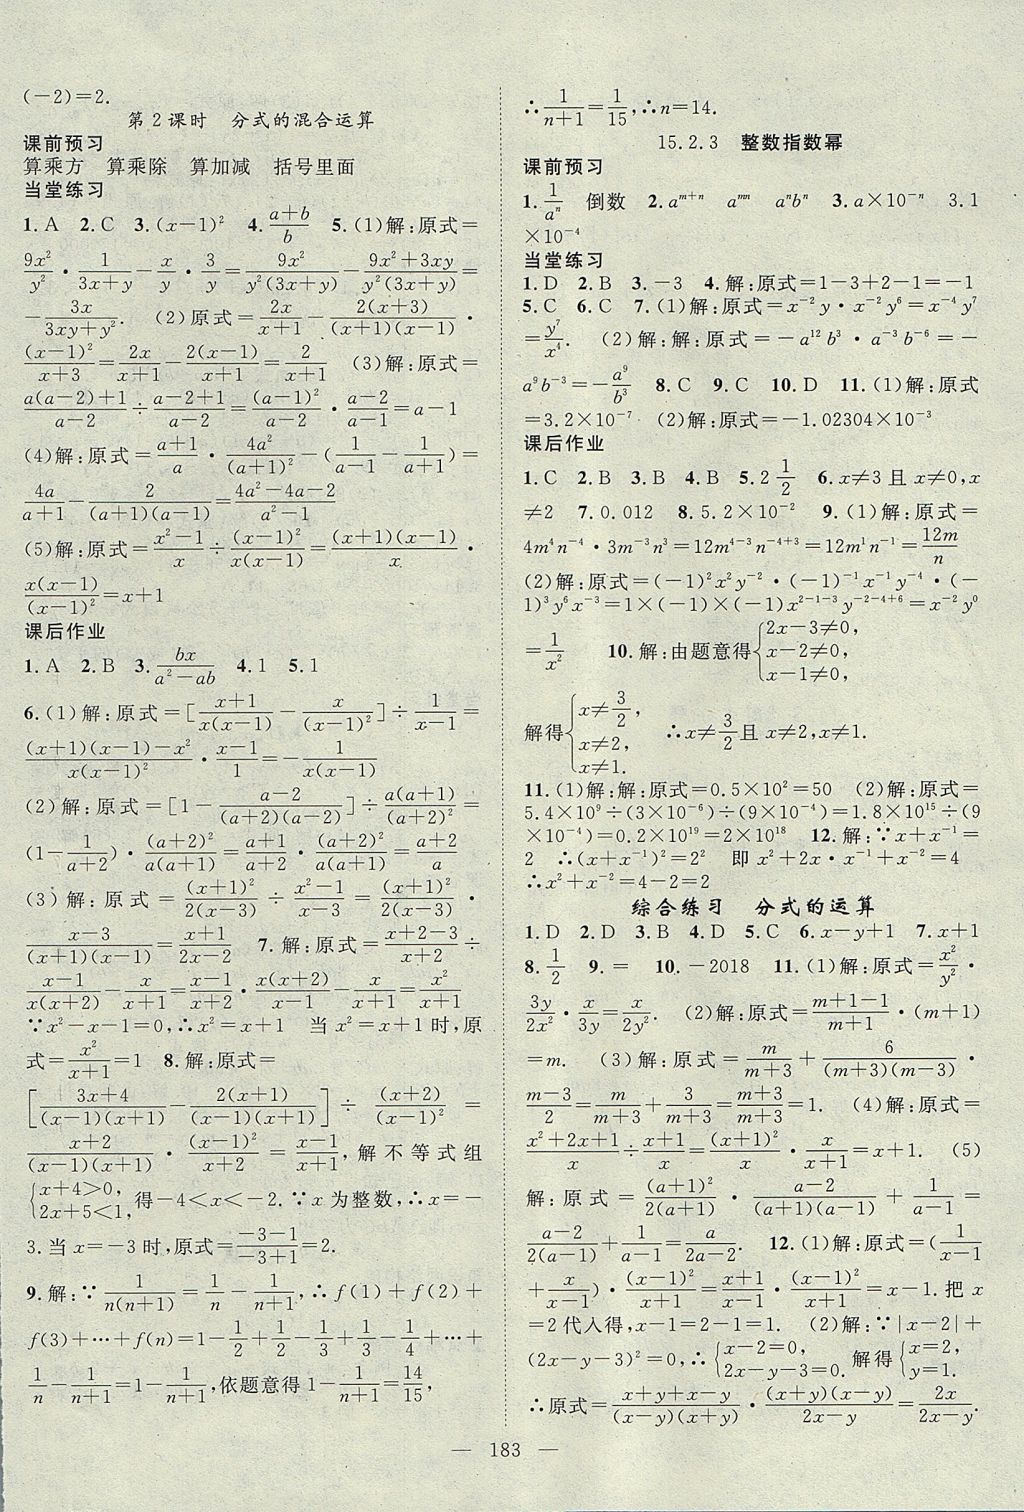 (-2)=2.
第2课时　分式的混合运算
课前预习
算乘方　算乘除　算加减　括号里面
当堂练习
1.A　2.C　3.(x-1)²　4.\frac{a+b}{b}　5.(1)解:原式=
\frac{9x²}{y²}·\frac{1}{3x+y}-\frac{x}{y}·\frac{3}{y}=\frac{9x²}{y²(3x+y)}-\frac{9x²+3xy}{y²(3x+y)}=
-\frac{3x}{3xy+y²}.　(2)原式=\frac{2x}{x+1}-\frac{2(x+3)}{(x+1)(x-1)}·
\frac{(x-1)²}{x+3}=\frac{2x}{x+1}-\frac{2(x-1)}{x+1}=\frac{2}{x+1}　(3)解:原式=
\frac{a(a-2)+1}{a-2}÷\frac{a-2+1}{a-2}=\frac{(a-1)²}{a-2}·\frac{a-2}{a-1}=a-1
(4)解:原式=\frac{a+1}{a}·\frac{4a²}{(a+1)²}-(\frac{1}{a-1}-\frac{1}{a+1})=
\frac{4a}{a+1}-\frac{2}{(a+1)(a-1)}=\frac{4a²-4a-2}{a²-1}
(5)解:原式=\frac{x²-1}{x}÷\frac{(x-1)²}{x²}=\frac{(x+1)(x-1)}{x}·
\frac{x(x-1)}{(x-1)²}=x+1
课后作业
1.A　2.B　3.\frac{bx}{a²-ab}　4.1　5.1
6.(1)解:原式=[\frac{x+1}{x(x-1)}-\frac{x}{(x-1)²}]÷\frac{1}{x-1}=
\frac{(x+1)(x-1)-x²}{x(x-1)²}·\frac{x-1}{1}=-\frac{1}{x(x-1)}
(2)解:原式=[1-\frac{a-2}{(a+2)(a-2)}]÷\frac{a(a+1)}{(a+2)²}=
(1-\frac{1}{a+2})·\frac{(a+2)²}{a(a+1)}=\frac{a+1}{a+2}·\frac{(a+2)²}{a(a+1)}=\frac{a+2}{a}
(3)解:原式=\frac{(x+1)²}{2(x-3)}÷\frac{x²-1}{x-3}=\frac{(x+1)²}{2(x-3)}·
\frac{x-3}{(x+1)(x-1)}=\frac{x+1}{2x-2}　7.解:原式=\frac{x+2-3}{x+2}÷
\frac{x-1}{x(x+2)}-\frac{x}{x+1}=\frac{x-1}{x+2}·\frac{x(x+2)}{x-1}-\frac{x}{x+1}=\frac{x²}{x+1}
∵x²-x-1=0,∴x²=x+1　当x²=x+1时,原
式=\frac{x²}{x+1}=1　8.解:原式=
[\frac{3x+4}{(x-1)(x+1)}-\frac{2(x+1)}{(x-1)(x+1)}]÷\frac{(x+2)}{(x-1)²}=
\frac{x+2}{(x-1)(x+1)}·\frac{(x-1)²}{x+2}=\frac{x-1}{x+1},解不等式组
{x+4>0, 2x+5<1,得-4<x<-2.∵x为整数,∴x=-
3.当x=-3时,原式=\frac{-3-1}{-3+1}=2.
9.解:∵\frac{1}{n(n+1)}=\frac{1}{n}-\frac{1}{n+1},∴f(1)+f(2)+
f(3)+…+f(n)=1-\frac{1}{2}+\frac{1}{2}-\frac{1}{3}+\frac{1}{3}-\frac{1}{4}+…+
\frac{1}{n}-\frac{1}{n+1}=1-\frac{1}{n+1},依题意得1-\frac{1}{n+1}=\frac{14}{15},
∴\frac{1}{n+1}=\frac{1}{15},∴n=14.
15.2.3　整数指数幂
课前预习
1.\frac{1}{aⁿ}　倒数　2.a^{m+n}　a^{mn}　aⁿbⁿ　3.a×10^{-n}　3.1
×10^{-4}
当堂练习
1.D　2.B　3.-3　4.解:原式=1-3+2-1=-1
5.C　6.C　7.(1)解:原式=x^{-2}y·x^{-2}y^{6}=x^{-4}y^{7}
=\frac{y^{7}}{x^{4}}.　(2)解:解:原式=-a^{12}b^{3}·a^{-3}b^{-6}=-
a^{9}b^{-3}=-\frac{a^{9}}{b^{3}}　8.C　9.C　10.D　11.(1)解:原式
=3.2×10^{-7}　(2)解:原式=-1.02304×10^{-3}
课后作业
1.C　2.B　3.B　4.B　5.2\frac{1}{2}　6.x≠3且x≠0,x
≠2　7.0.012　8.5.2×10^{-2}　9.(1)解:原式=
4m^{4}n^{-4}·3m^{-3}n^{3}=12m^{4-3}n^{-4+3}=12m^{1}n^{-1}=\frac{12m}{n}
(2)解:原式=(-1)²x²y^{-2}·(-1)^{-1}x^{-1}y^{-4}·(-
1)^{3}y^{6}x^{-3}=1×(-1)×(-1)x^{2-1-3}y^{-2-4+6}=x^{-2}y^{0}
=\frac{1}{x²}　10.解:由题意得{2x-3≠0, x-2≠0, x-1≠0,
解得{x≠\frac{3}{2}, x≠2, x≠1.　∴x≠\frac{3}{2}且x≠2,x≠1.
11.(1)解:解:原式=0.5×10²=50　(2)解:原式=
5.4×10^{9}÷(3×10^{-6})÷(9×10^{-4})=1.8×10^{15}÷(9
×10^{-4})=0.2×10^{19}=2×10^{18}　12.解:∵x+x^{-1}=
2　∴(x+x^{-1})²=4　即x²+2x·x^{-1}+x^{-2}=4
∴x²+x^{-2}=4-2=2
综合练习　分式的运算
1.D　2.D　3.B　4.D　5.C　6.x-y+1　7.x+1
8.\frac{1}{2}　9.=　10.-2018　11.(1)解:原式=\frac{x²}{y²}·
\frac{3y}{2x²}·\frac{x}{3y}=\frac{x}{2y²}.　(2)解:原式=\frac{m+1-1}{m+1}·(m+1)
=m.　(3)解:原式=\frac{m}{m+3}+\frac{6}{(m+3)(m-3)}·
\frac{m-3}{2}=\frac{m}{m+3}+\frac{3}{m+3}=\frac{m+3}{m+3}=1.　(4)解:原式=
\frac{x²+2x+1}{x}÷\frac{x+1}{x}=\frac{(x+1)²}{x}·\frac{x}{x+1}=x+1.　(5)
解:原式=\frac{(a+1)²}{2(a+1)}·\frac{a-2}{(a+1)(a-1)}+\frac{1}{a-1}=
\frac{a-2}{2(a-1)}+\frac{1}{a-1}=\frac{a}{2a-2}.　12.(1)解:原式=(\frac{1}{x-1}
+\frac{x}{x-1})·\frac{(x-1)²}{x+1}=\frac{x+1}{x-1}·\frac{(x-1)²}{x+1}=x-1.把x
=2代入得,x-1=2-1=1.　(2)解:∵|x-2|+
(2x-y-3)²=0,∴{x-2=0, 2x-y-3=0.解得{x=2, y=1.
∴原式=\frac{x+y+x-y}{(x-y)(x+y)}·\frac{(x+y)(x-y)}{2x-y}=\frac{2x}{2x-y}.
— 183 —